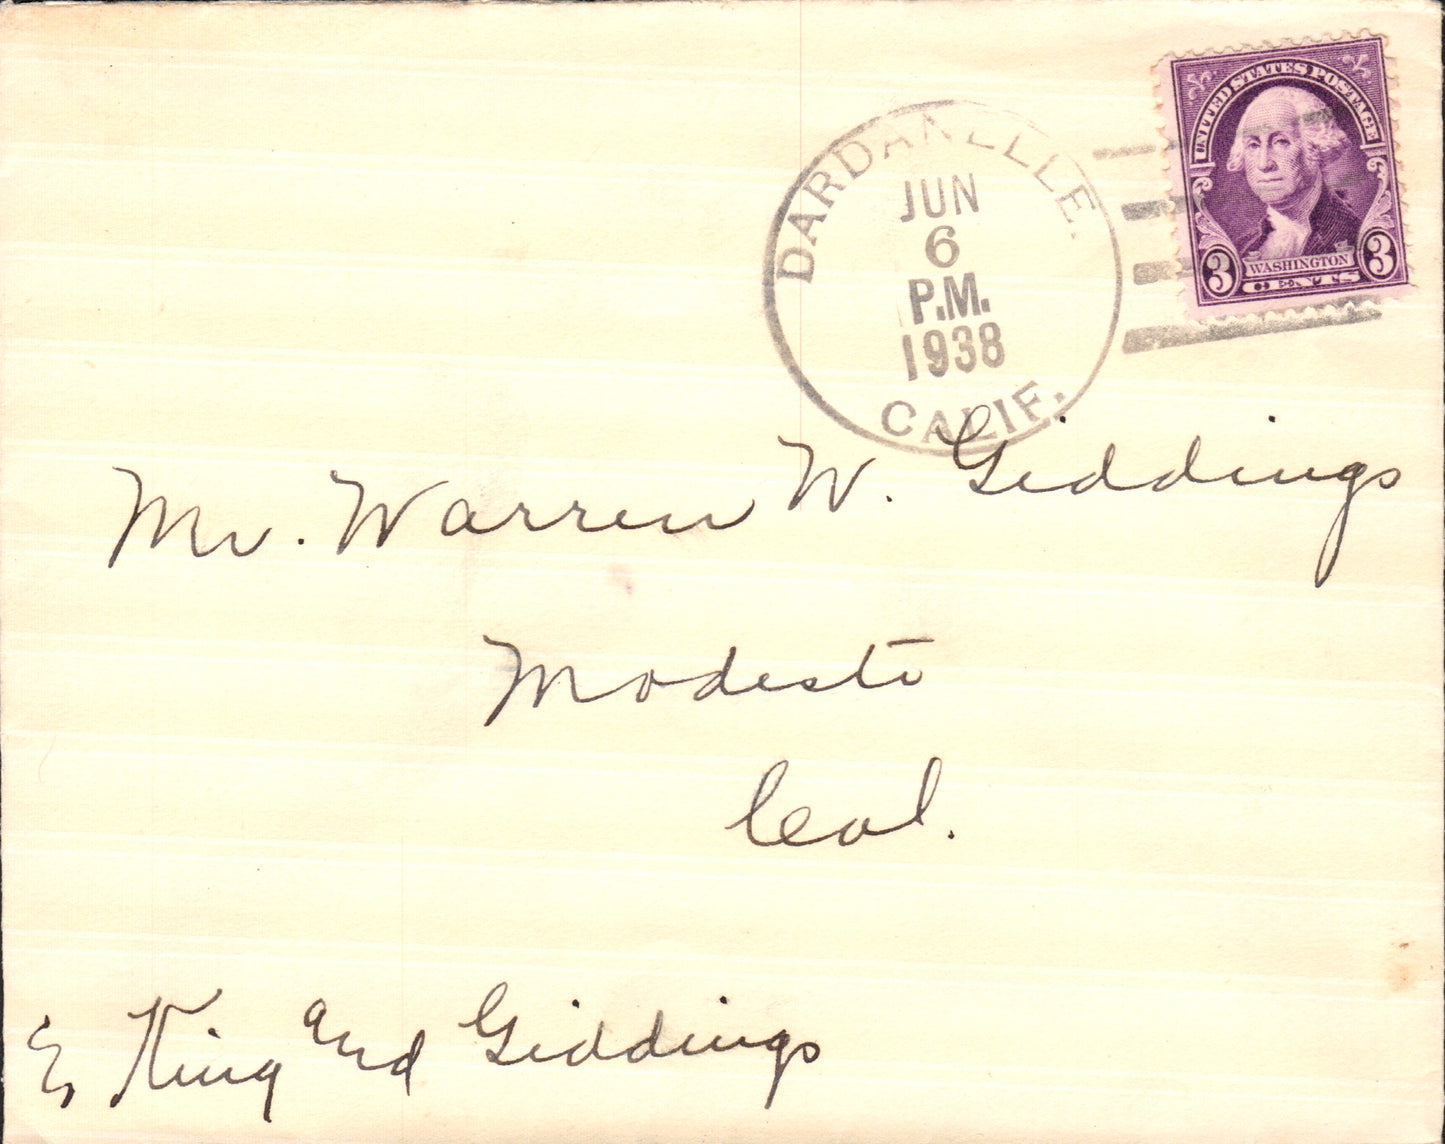 UNITED STATES POSTAGE
3 WASHINGTON 3
CENTS
DARDANELLE.
JUN
6
P.M.
1938
CALIF.
Mr. Warren W. Giddings
Modesto
Cal.
King and Giddings